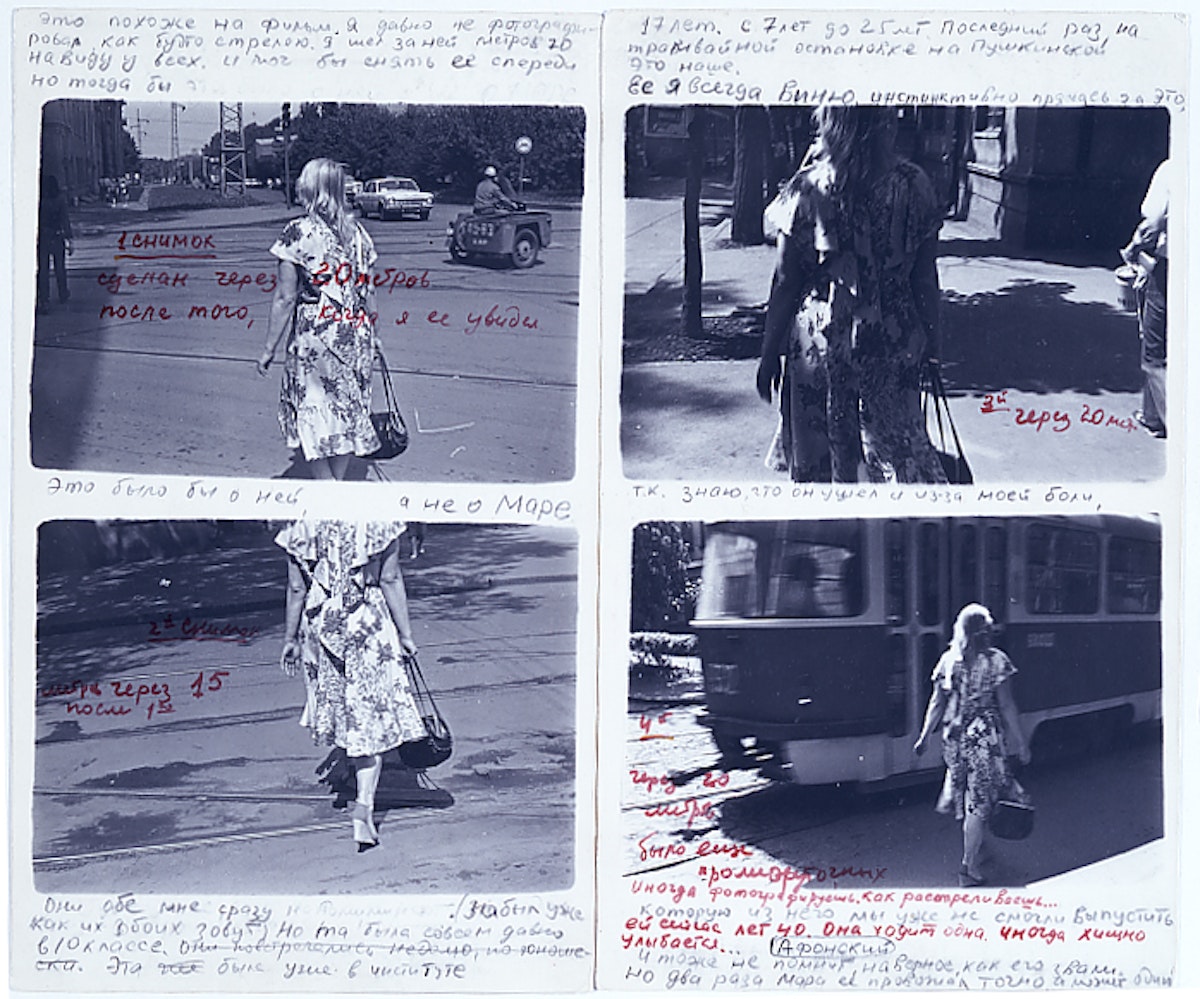 это похоже на фильм. Я давно не фотографи-
ровал как будто стрелою. Я шел за ней метров 20
на виду у всех. И мог бы снять ее спереди
но тогда бы
1 снимок
сделан через 20 метров
после того, когда я ее увидел
Это было бы о ней, а не о Маре
2й снимок
метров через 15
после 1го
Они обе мне сразу напомнили. (Забыл уже
как их обоих зовут) Но та была совсем давно
в 10 классе.
Эта уже была уже в институте
17 лет. с 7 лет до 25 лет. Последний раз на
трамвайной остановке на Пушкинской
Это наше.
Ее я всегда виню, инстинктивно прячась за это,
3й
через 20 мет.
т.к. знаю, что он ушел и из-за моей боли,
4й
через 20
метров
было еще
промежуточных
Иногда фотографируешь, как расстреливаешь...
которую из него мы уже не смогли выпустить
ей сейчас лет 40. Она ходит одна. иногда хищно
улыбается... Афонский
и тоже не помнит, наверное, как его звали.
Но два раза Мара ее провожал точно а может